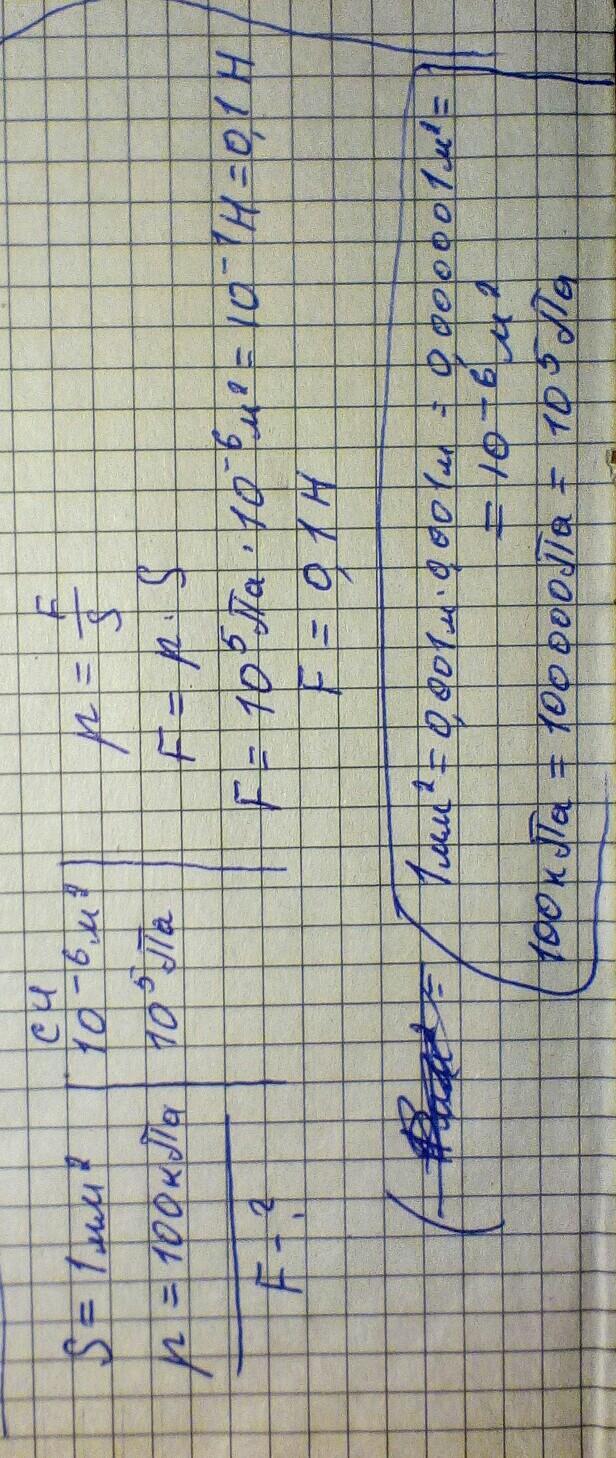 СИ
S = 1мм² 10⁻⁶м² p = F/S
p = 100кПа 10⁵Па F = p · S
F - ? F = 10⁵Па · 10⁻⁶м² = 10⁻¹Н = 0,1Н
F = 0,1Н
1мм² = 0,001м · 0,001м = 0,000001м² =
= 10⁻⁶м²
100кПа = 100000Па = 10⁵Па